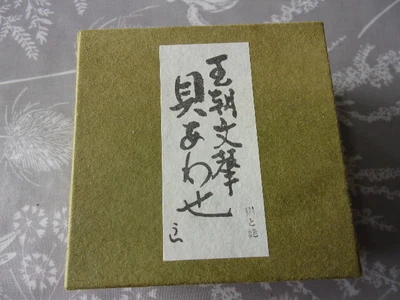 王朝文華
貝あわせ